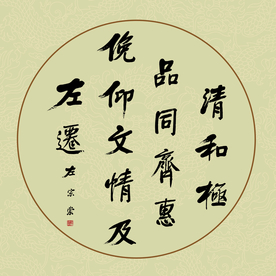 清和極
品同齊惠
俛仰文情及
左遷
左宗棠